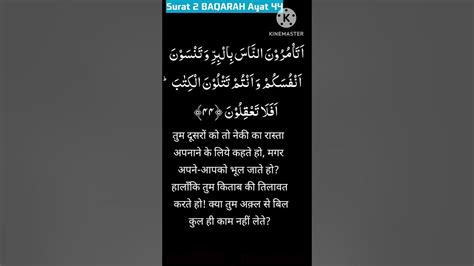 Surat 2 BAQARAH Ayat 44
KINEMASTER
اَتَاْمُرُوْنَ النَّاسَ بِالْبِرِّ وَتَنْسَوْنَ
اَنْفُسَكُمْ وَاَنْتُمْ تَتْلُوْنَ الْكِتٰبَ ؕ
اَفَلَا تَعْقِلُوْنَ ﴿۴۴﴾
तुम दूसरों को तो नेकी का रास्ता
अपनाने के लिये कहते हो, मगर
अपने-आपको भूल जाते हो?
हालाँकि तुम किताब की तिलावत
करते हो! क्या तुम अक़्ल से बिल
कुल ही काम नहीं लेते?